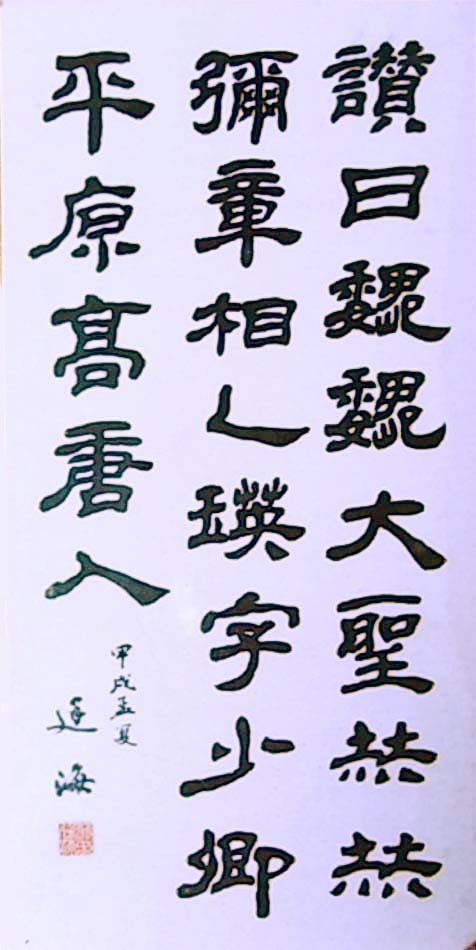 讚曰魏魏大聖赫赫
彌章相乙瑛字少卿
平原髙唐人
甲戌孟夏
海